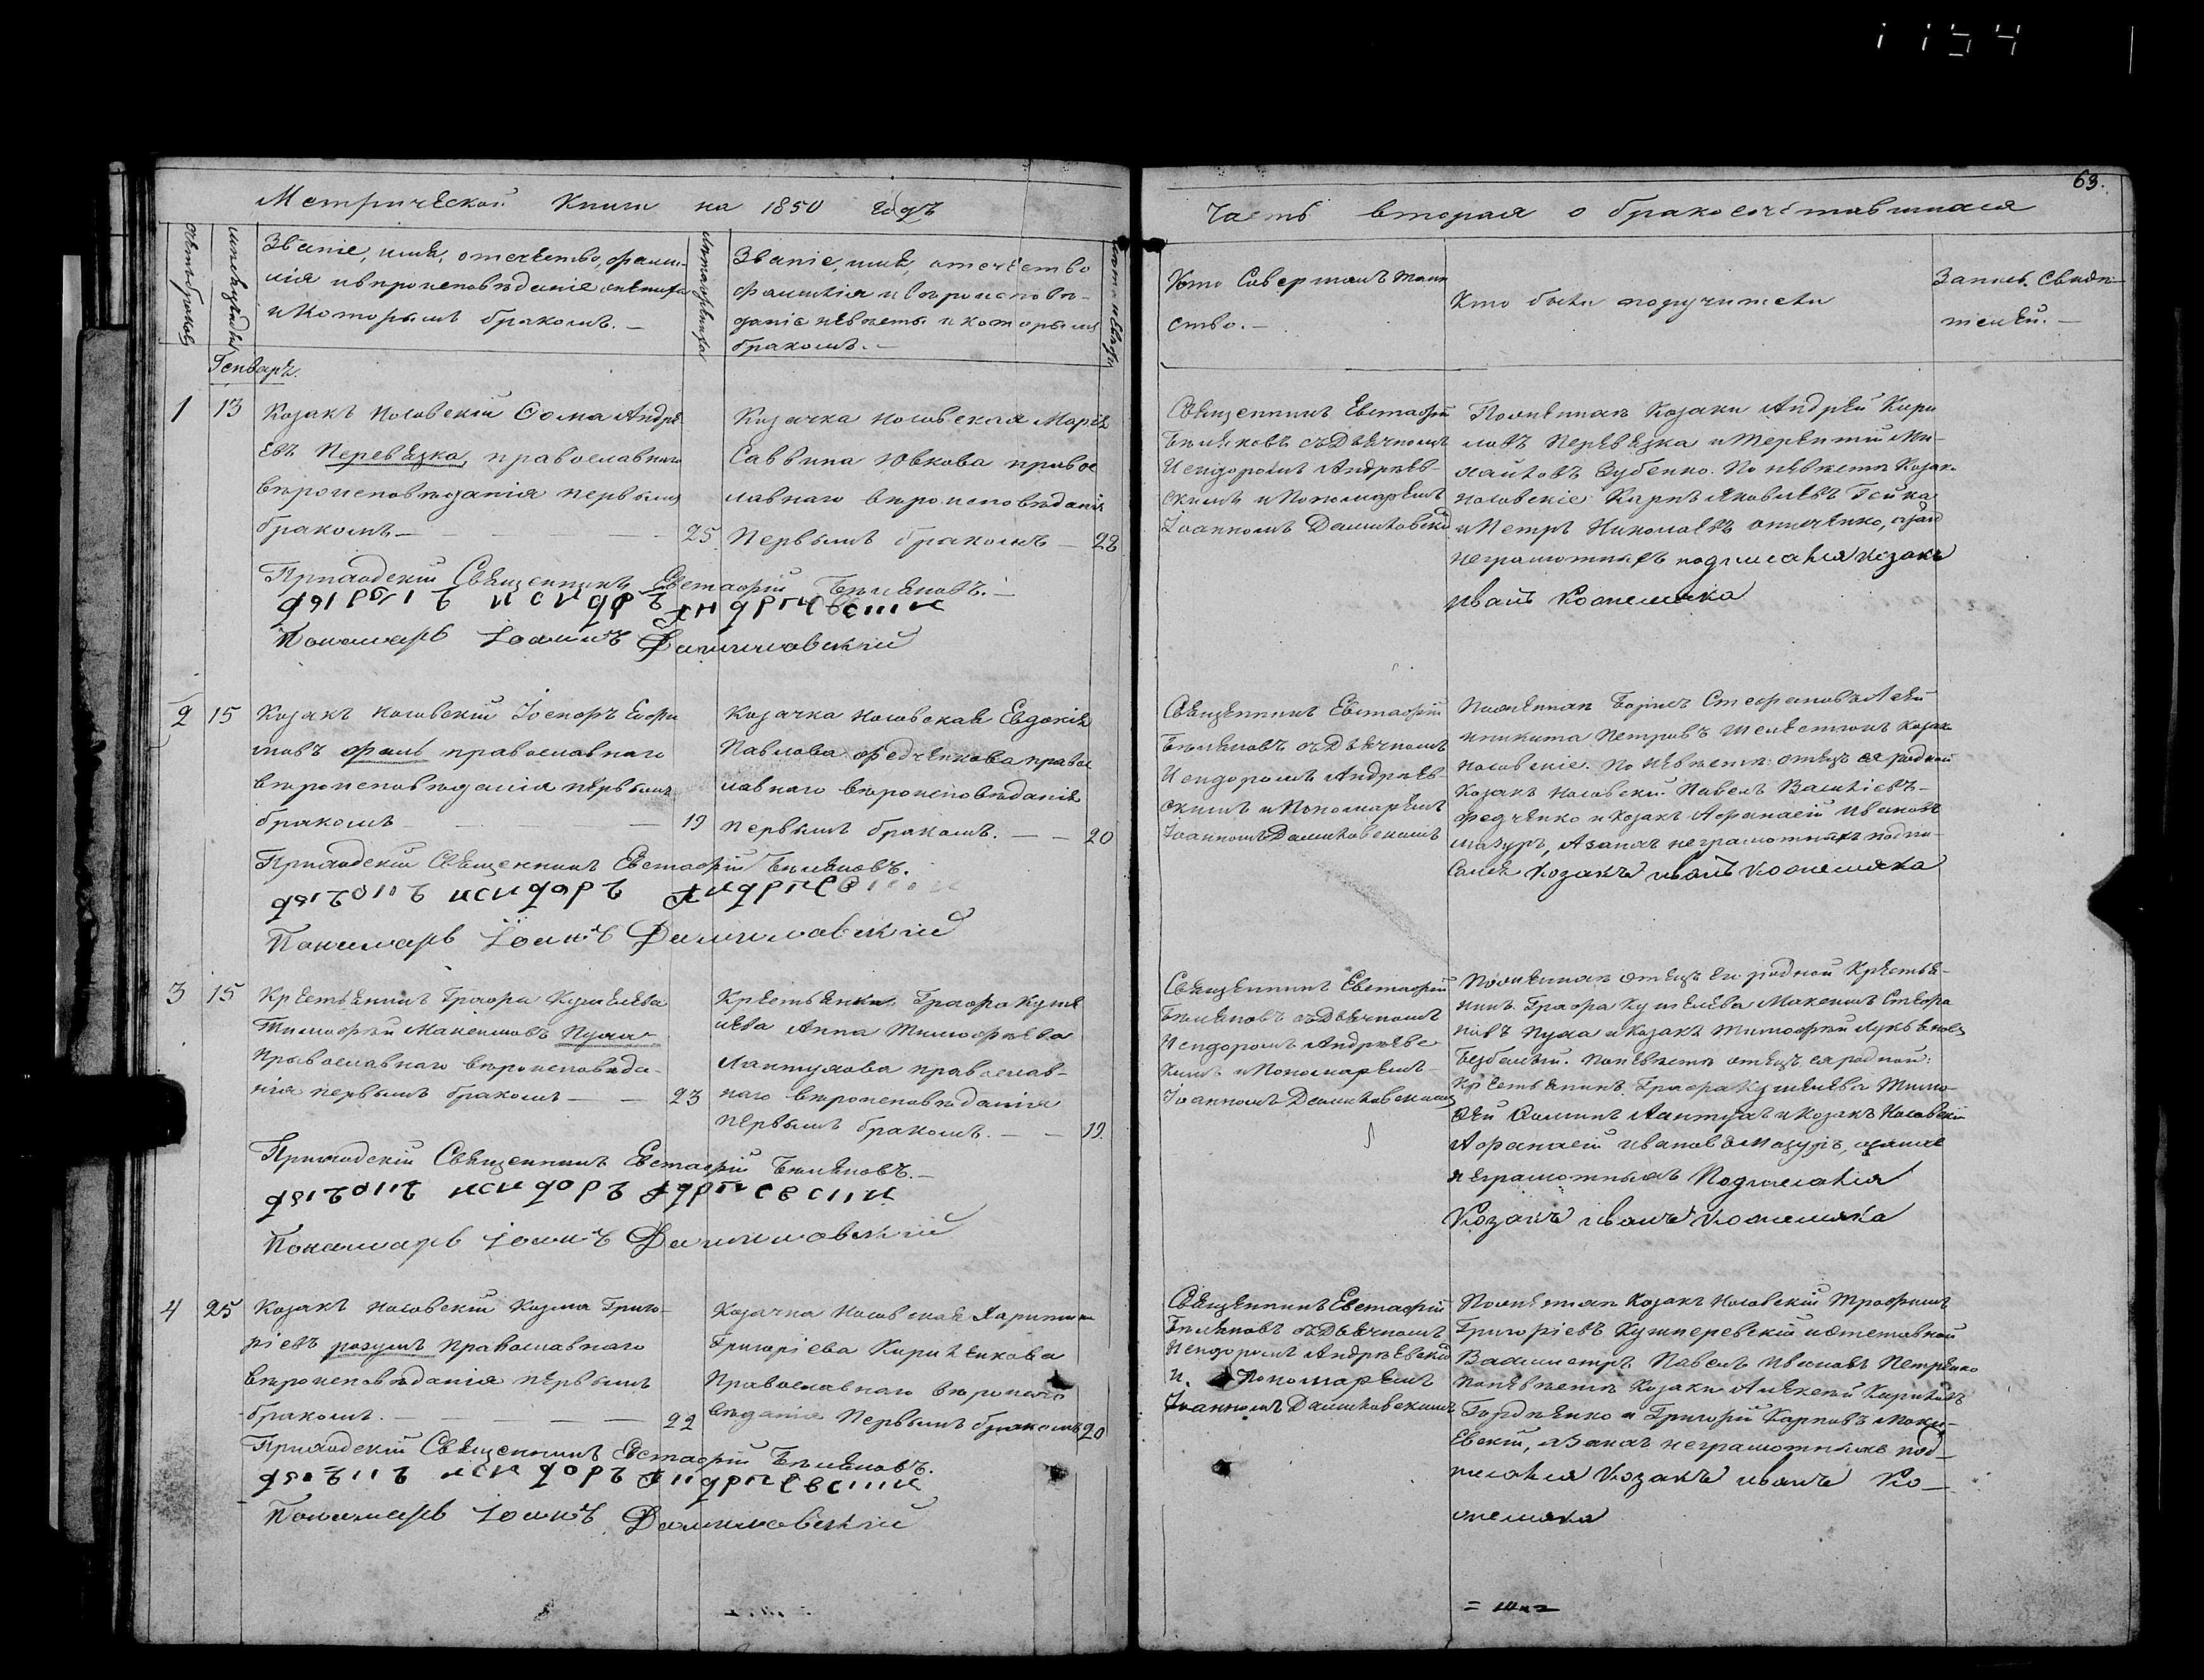 1154
63.
Метрической Книги на 1850 годъ
Часть вторая о бракосочетавшихся
Счетъ браковъ
Мѣсяцъ и день
Званіе, имя, отечество, фами-
лія и вѣроисповѣданіе жениха
и Которымъ бракомъ.—
Лѣта жениха
Званіе, имя, отечество
фамилія и вѣроисповѣ-
даніе невѣсты и которымъ
бракомъ.—
Лѣта невѣсты
Кто Совершалъ таин
ство.—
Кто были поручители
Генварь.
1 13
Козакъ Носовскій Ѳома Андре
евъ Перевязка, православнаго
вѣроисповѣданія первымъ
бракомъ — 25
Козачка Носовская Марія
Саввина Ювкова право
славнаго вѣроисповѣданія
Первымъ бракомъ — 22
Священникъ Евстафій
Бѣляковъ съ Дьячкомъ
Исидоромъ Андрѣев-
скимъ и Пономаремъ
Іоанномъ
По женихѣ Козаки Андрей Кири
ловъ Перевязка и Терентій Ми-
хайловъ Зубенко. По невѣстѣ Козаки
Носовскіе Карпъ Яковлевъ Гейка
и Петръ Николаевъ
неграмотныхъ подписался козакъ
Иванъ Кожемяка
Приходскій Священникъ Евстафій Бѣляковъ.—
дьячокъ исидоръ андрѣевскій
Пономарь Іоаннъ
2 15
Козакъ Носовскій
православнаго
вѣроисповѣданія первымъ
бракомъ — 19
Козачка Носовская Евдокія
Павлова Федченкова право
славнаго вѣроисповѣданія
первымъ бракомъ. — 20
Священникъ Евстафій
Бѣляковъ съ Дьячкомъ
Исидоромъ Андрѣев-
скимъ и Пономаремъ
Іоанномъ
По женихѣ Борисъ Стефановъ
и Никита Петровъ козаки
Носовскіе. По невѣстѣ: отецъ ея родной
Козакъ Носовскій Павелъ Васильевъ
Федченко и Козакъ Афанасій Ивановъ
Мазуръ, А за нихъ неграмотныхъ подпи-
сался Козакъ Иванъ Кожемяка
Приходскій Священникъ Евстафій Бѣляковъ.
дьячокъ исидоръ андрѣевскій
Пономарь Іоаннъ
3 15
Крестьянинъ Графа Кушелева
Тимофей Максимовъ Пуха
Православнаго вѣроисповѣда-
нія первымъ бракомъ — 23
Крестьянка Графа Куше
лева Анна Тимофѣева
православ-
наго вѣроисповѣданія
первымъ бракомъ. — 19.
Священникъ Евстафій
Бѣляковъ съ Дьячкомъ
Исидоромъ Андрѣевс
кимъ и Пономаремъ
Іоанномъ
По женихѣ отецъ его родной Крестья-
нинъ Графа Кушелева Максимъ Стефа
новъ Пуха и Козакъ Тимофей Лукьяновъ
По невѣстѣ отецъ ея родной:
Крестьянинъ Графа Кушелева Тимо-
фей и Козакъ Носовскій
Афанасій Ивановъ Мазуръ, а за нихъ
неграмотныхъ Подписался
Козакъ Иванъ Кожемяка
Приходскій Священникъ Евстафій Бѣляковъ.—
дьячокъ исидоръ андрѣевскій
Пономарь Іоаннъ
4 25
Козакъ Носовскій Козма Григо-
ріевъ разумъ Православнаго
Вѣроисповѣданія первымъ
бракомъ. — 22
Козачка Носовская
Григоріева Кириенкова
Православнаго вѣроиспо
вѣданія Первымъ бракомъ 20
Священникъ Евстафій
Бѣляковъ съ Дьячкомъ
Исидоромъ Андрѣевскимъ
и Пономаремъ
Іоанномъ
По женихѣ Козакъ Носовскій Трофимъ
Григоріевъ и отставной
Вахмистръ Павелъ Ивановъ Петренко
По невѣстѣ Козаки Алексѣй
Гордѣенко и Григорій Карповъ
а за нихъ неграмотныхъ под-
писался Козакъ Иванъ Ко-
жемяка
Приходскій Священникъ Евстафій Бѣляковъ.
дьячокъ исидоръ андрѣевскій
Пономарь Іоаннъ